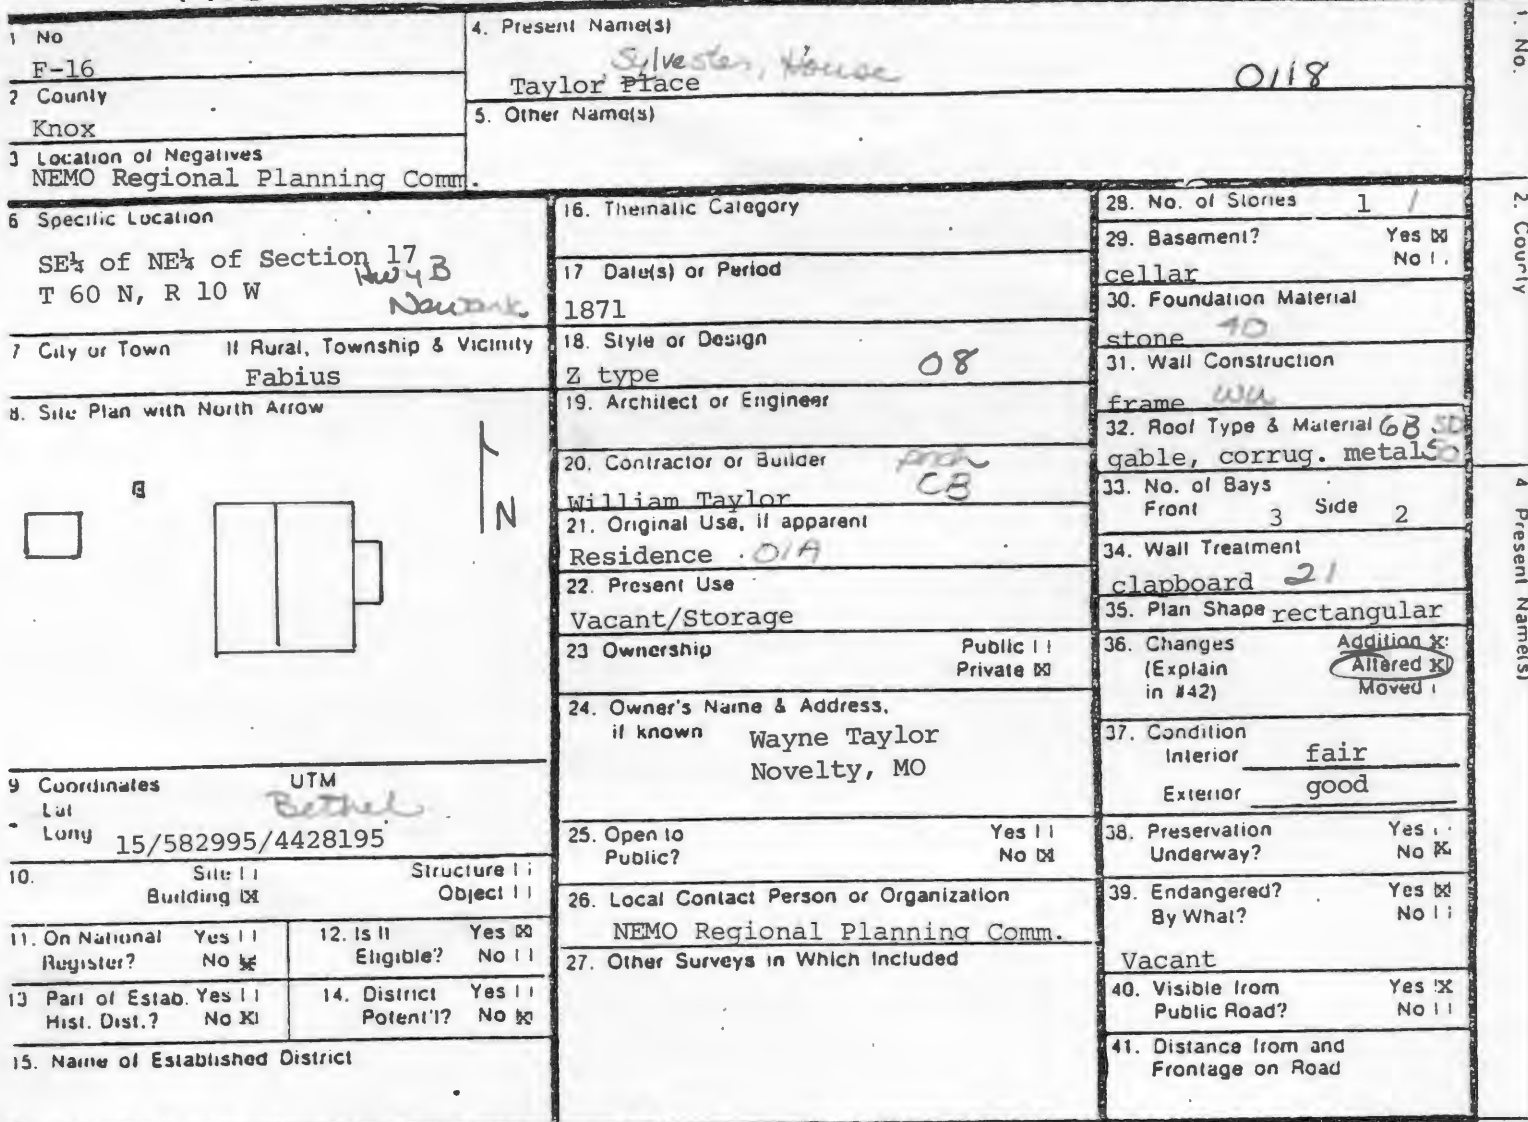 1 No
F-16
2 County
Knox
3 Location of Negatives
NEMO Regional Planning Comm.
4. Present Name(s)
Sylvester, House
Taylor Place
0118
5. Other Name(s)
6 Specific Location
SE¼ of NE¼ of Section 17
T 60 N, R 10 W
Hwy B
Newark
7 City or Town If Rural, Township & Vicinity
Fabius
8. Site Plan with North Arrow
N
9 Coordinates UTM
Lat
Bethel
Long 15/582995/4428195
10. Site
Structure
Building ☒
Object
11. On National Register? Yes
No ☒
12. Is It Eligible? Yes ☒
No
13 Part of Estab. Hist. Dist.? Yes
No ☒
14. District Potent'l? Yes
No ☒
15. Name of Established District
16. Thematic Category
17 Date(s) or Period
1871
18. Style or Design
Z type 08
19. Architect or Engineer
20. Contractor or Builder
porch
CB
William Taylor
21. Original Use, if apparent
Residence 01A
22. Present Use
Vacant/Storage
23 Ownership Public
Private ☒
24. Owner's Name & Address,
if known
Wayne Taylor
Novelty, MO
25. Open to Yes
Public? No ☒
26. Local Contact Person or Organization
NEMO Regional Planning Comm.
27. Other Surveys in Which Included
28. No. of Stories 1 1
29. Basement? Yes ☒
No
cellar
30. Foundation Material
stone 40
31. Wall Construction
frame WU
32. Roof Type & Material GB
gable, corrug. metal
33. No. of Bays
Front 3 Side 2
34. Wall Treatment
clapboard 21
35. Plan Shape rectangular
36. Changes Addition X
(Explain Altered X
in #42) Moved
37. Condition
Interior fair
Exterior good
38. Preservation Yes
Underway? No X
39. Endangered? Yes ☒
By What? No
Vacant
40. Visible from Yes X
Public Road? No
41. Distance from and
Frontage on Road
1. No.
2. County
4 Present Name(s)